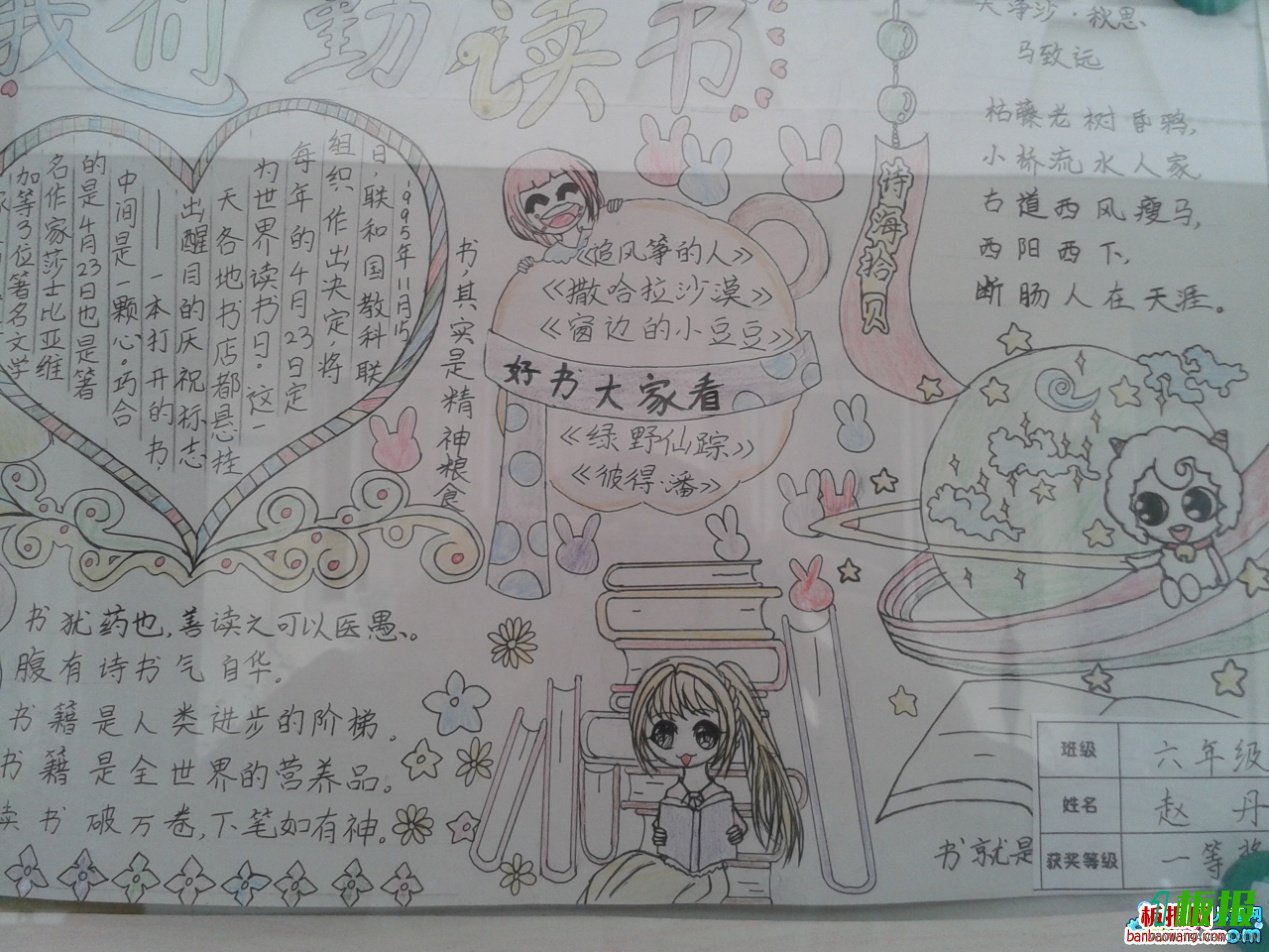 我们勤读书
1995年11月15
日,联和国教科联
组织作出决定,将
每年的4月23日定
为世界读书日。这一
天各地书店都悬挂
出醒目的厌祝标志
——一本打开的书,
中间是一颗心。巧合
的是4月23日也是箸
名作家莎士比亚维
加等3位箸名文学
书,其实是精神粮食
《追风筝的人》
《撒哈拉沙漠》
《窗边的小豆豆》
好书大家看
《绿野仙踪》
《彼得·潘》
诗海拾贝
天净沙·秋思
马致远
枯藤老树昏鸦,
小桥流水人家
古道西风瘦马,
西阳西下,
断肠人在天涯。
书犹药也,善读之可以医愚。
腹有诗书气自华。
书籍是人类进步的阶梯。
书籍是全世界的营养品。
读书破万卷,下笔如有神。
书就是
班级 六年级
姓名 赵丹
获奖等级 一等奖
板报网
banbaowang.com
板报